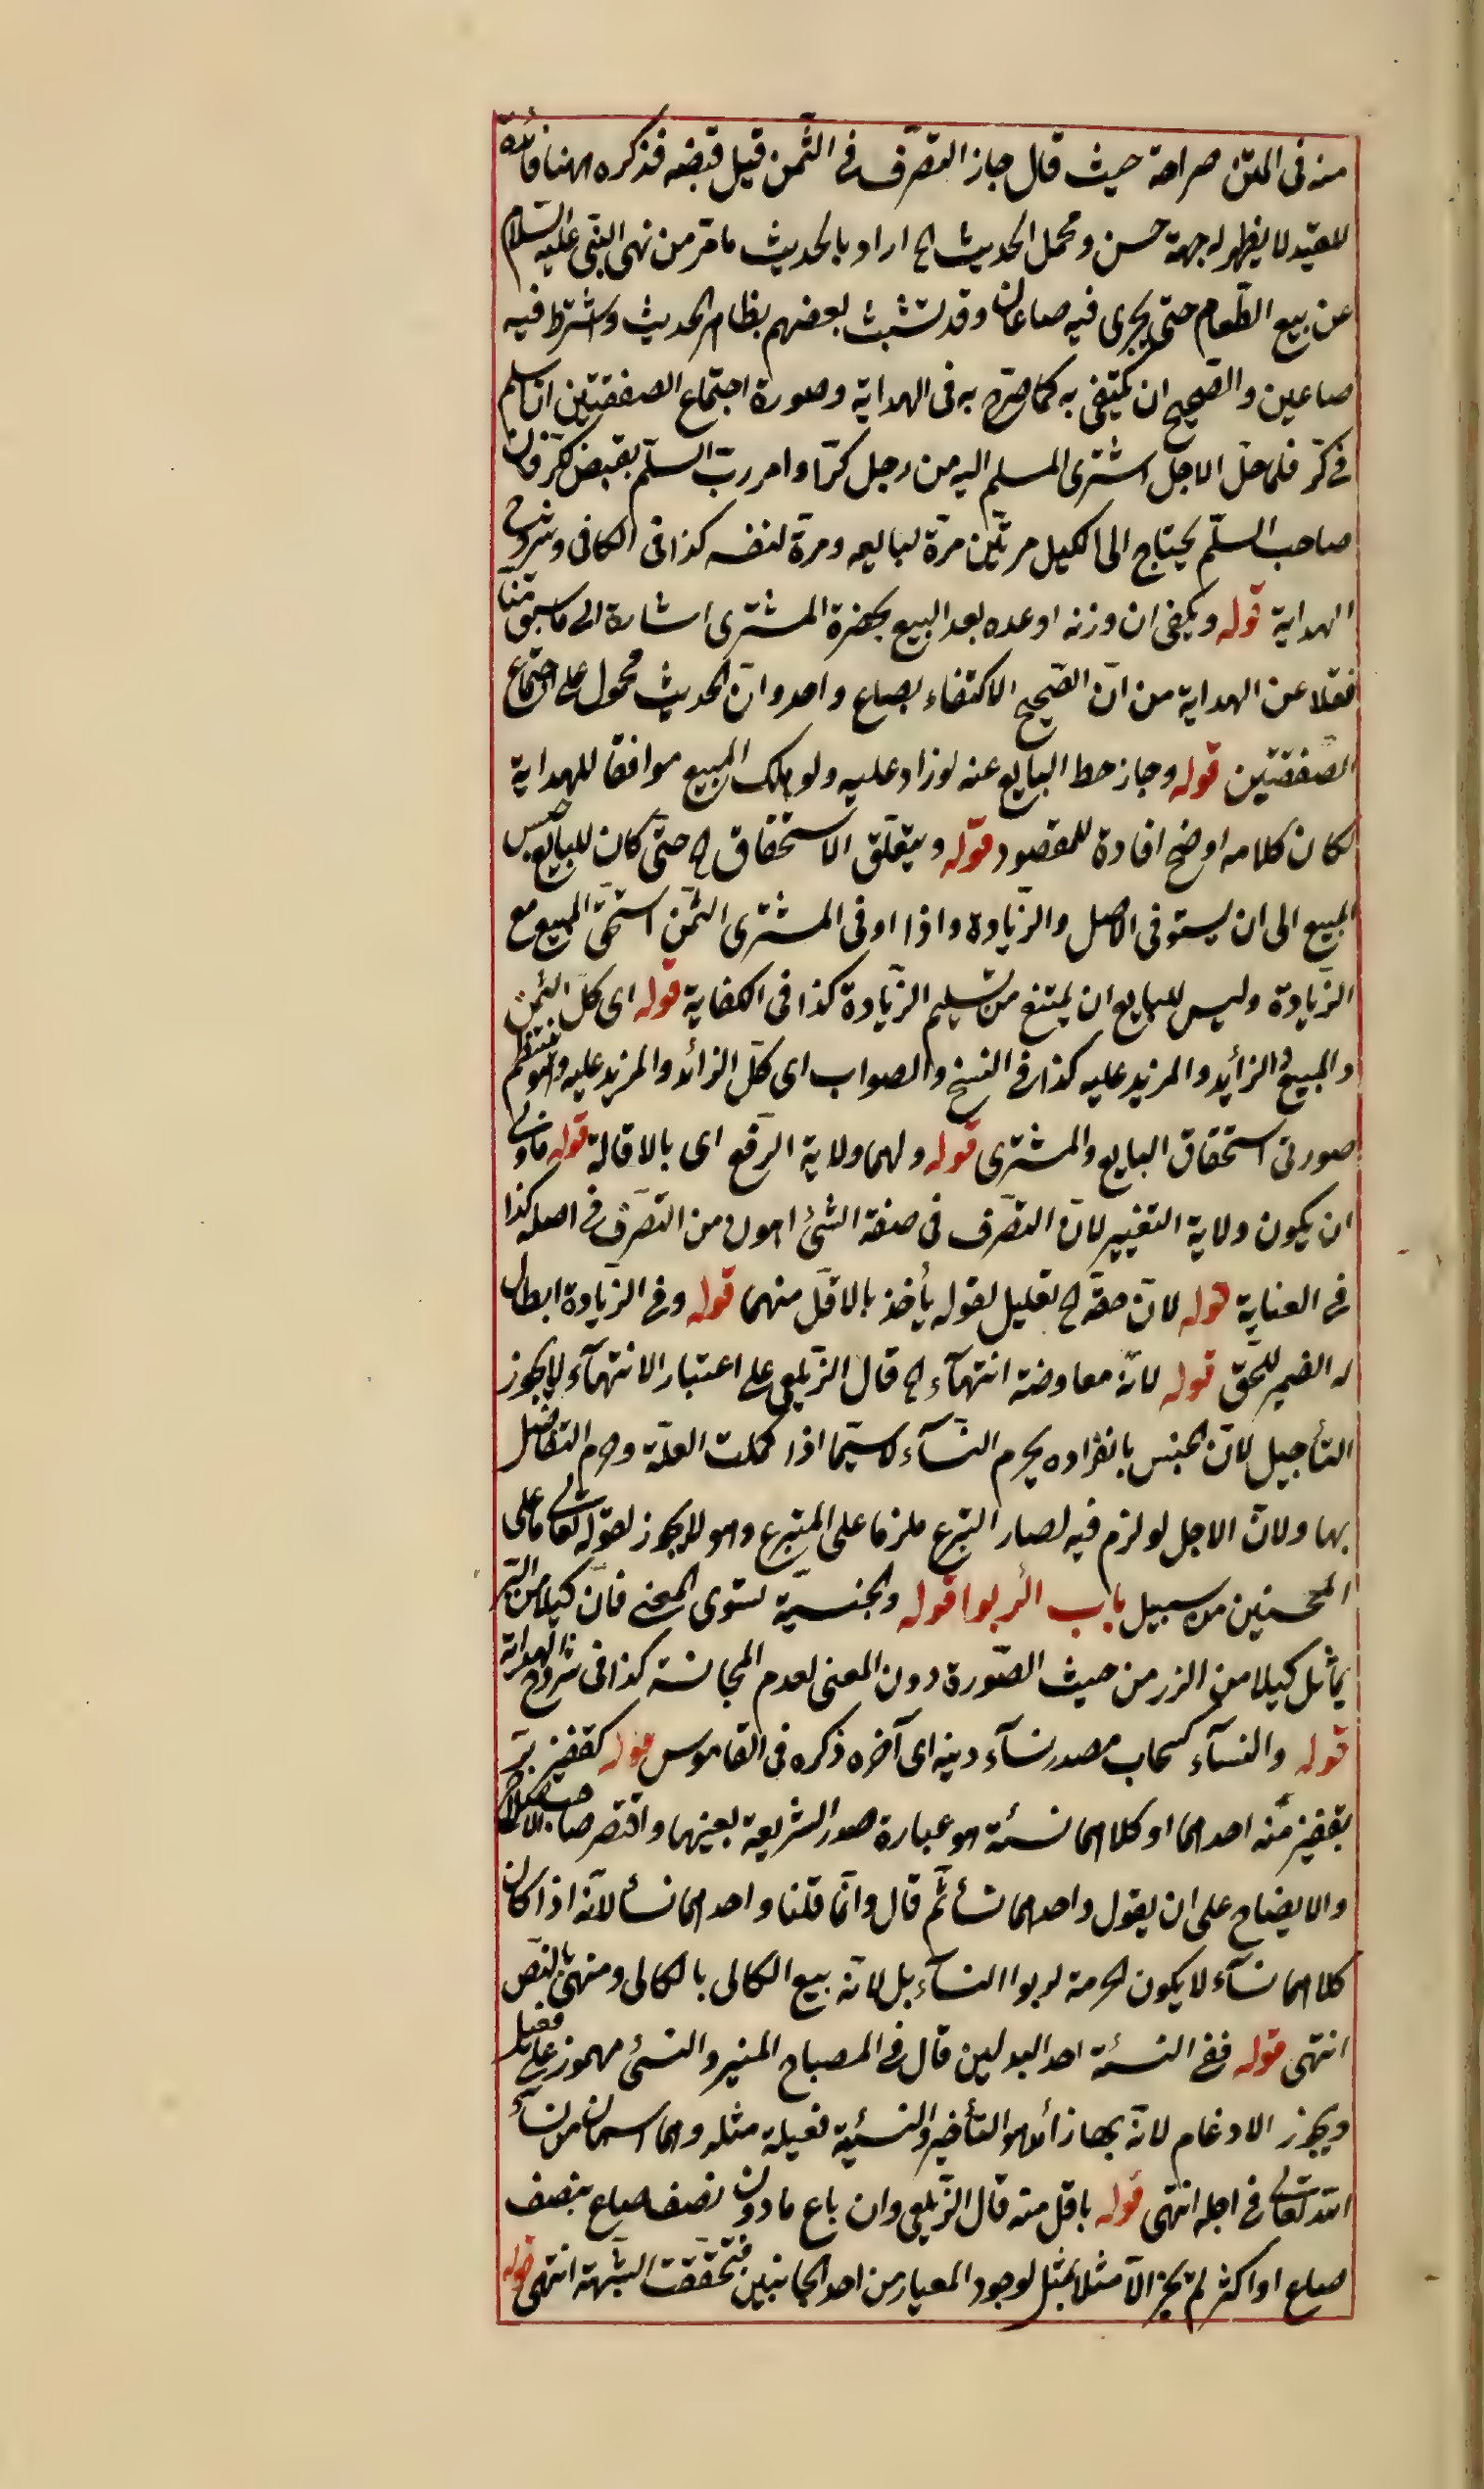 منه فى المتن صراحة حيث قال جاز التصرّف فى الثّمن قبل قبضه فذكره ههنا فائدة
للقيد لا يظهر له جهة حسن ومحمل الحديث الخ اراد بالحديث ما مرّ من نهى النبّى عليه السّلام
عن بيع الطّعام حتّى يجرى فيه صاعان وقد تشبث بعضهم بظاهر الحديث واشترط فيه
صاعين والصّحيح ان يكتفى به كما صرّح به فى الهداية وصورة اجتماع الصفقتين ان اسلم
فى كرّ فلمّا حلّ الاجل اشترى المسلم اليه من رجل كرّا وامر ربّ السلّم بقبض كرّ فان
صاحب السلّم يحتاج الى الكيل مرتّين مرّة لبايعه ومرة لنفسه كذا فى الكافى وشروح
الهداية قوله ويكفى ان وزنه او عدّه بعد البيع بحضرة المشترى اشارة الى ما سبق منّا
نقلا عن الهداية من انّ الصّحيح الاكتفاء بصاع واحد وانّ الحديث محمول على اجتماع
الصّفقتين قوله وجاز حط البايع عنه لو زاد عليه ولو هلك المبيع موافقا للهداية
لكان كلامه اوضح افادة للمقصود قوله ويتعلّق الاستحقاق الخ حتّى كان للبايع حبس
المبيع الى ان يستوفى الاصل والزّيادة واذا اوفى المشترى الثّمن استحقّ المبيع مع
الزّيادة وليس للبايع ان يمتنع من تسليم الزّيادة كذا فى الكفاية قوله اى كلّ الثّمن
والمبيع والزّايد والمزيد عليه كذا فى النسخ والصواب اى كلّ الزائد والمزيد عليه وهو ينتظم
صورتى استحقاق البايع والمشترى قوله ولهما ولاية الرّفع اى بالاقالة قوله فاولى
ان يكون ولاية التغيير لانّ التصّرف فى صفة الشّئ اهون من التصّرف فى اصله كذا
فى العناية قوله لانّ حقّه الخ تعليل لقوله يأخذ بالاقلّ منهما قوله وفى الزّيادة ابطال
له الضمير للحّق قوله لانّه معاوضة انتهآء الخ قال الزّيلعى على اعتبار الانتهآء لا يجوز
التأجيل لانّ الجنس بانفراده يحرم النسآء لا سيّما اذا كملت العلّة وحرم التفاضل
بها ولانّ الاجل لو لزم فيه لصار التبرّع ملزما على المتبرع وهو لا يجوز لقوله تعالى ما على
المحسنين من سبيل باب الربوا قوله والجنسيّة تسوى المعنى فانّ كيلا من البرّ
يماثل كيلا من الزر من حيث الصّورة دون المعنى لعدم المجانسة كذا فى شروح الهداية
قوله والنسآء كسحاب مصدر نسآء دينه اى آخره ذكره فى القاموس قوله كقفيز برّ
بقفيز منه احدهما او كلاهما نسئة هو عبارة صدر الشريعة بعينها واقتصر صاحب الاصلاح
والايضاح على ان يقول واحدهما نسأ ثمّ قال وانّما قلنا واحدهما نسأ لانّه اذا كان
كلاهما نسآء لا يكون الحرمة لربوا النسآء بل لانّه بيع الكالى بالكالى ومنهى بالنصّ
انتهى قوله ففى النسئة احد البدلين قال فى المصباح المنير والنسئ مهموز على فعيل
ويجوز الادغام لانّه بها زائد وهو التأخير والنسئية فعيلة مثله وهما اسمان من نسأ
الله تعالى فى اجله انتهى قوله باقل منه قال الزّيلعى وان باع ما دون نصف صاع بنصف
صاع او اكثر لم يجز الّا مثلا بمثل لوجود المعيار من احد الجانبين فتحققّت الشّبهة انتهى قوله